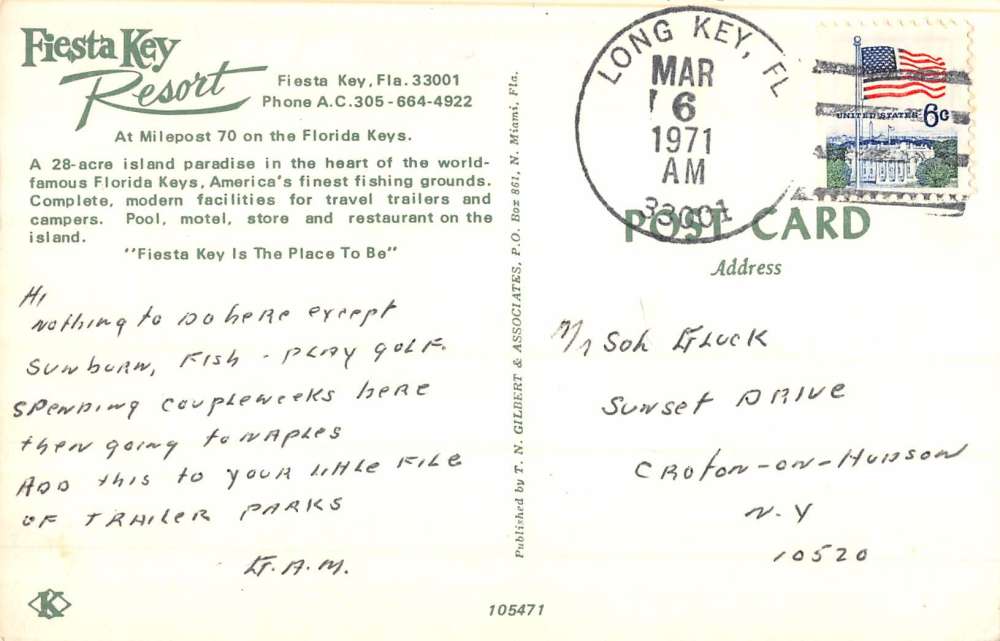 Fiesta Key
Resort
Fiesta Key, Fla. 33001
Phone A.C. 305-664-4922
At Milepost 70 on the Florida Keys.
A 28-acre island paradise in the heart of the world-
famous Florida Keys, America's finest fishing grounds.
Complete, modern facilities for travel trailers and
campers. Pool, motel, store and restaurant on the
island.
"Fiesta Key Is The Place To Be"
Hi
Nothing to do here except
sunburn, fish - play golf.
Spending couple weeks here
then going to Naples
Add this to your little file
of trailer parks
G.A.M.
K
Published by T. N. GILBERT & ASSOCIATES, P.O. Box 861, N. Miami, Fla.
105471
LONG KEY, FL
MAR
6
1971
AM
33001
UNITED STATES 6c
POST CARD
Address
Mr Sol Gluck
Sunset Drive
Croton-on-Hudson
N.Y
10520